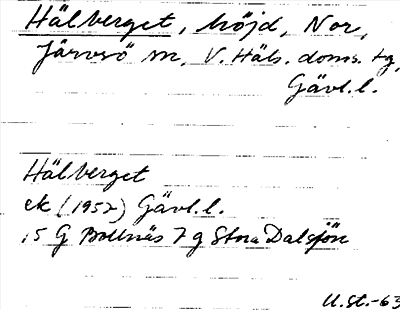 Hälberget, höjd, Nor,
Järvsö sn, V. Häls. doms. tg,
Gävl. l.
Hälberget
ek (1952) Gävl. l.
15 G Bollnäs 7 g Stora Dalsjön
U. St. -63